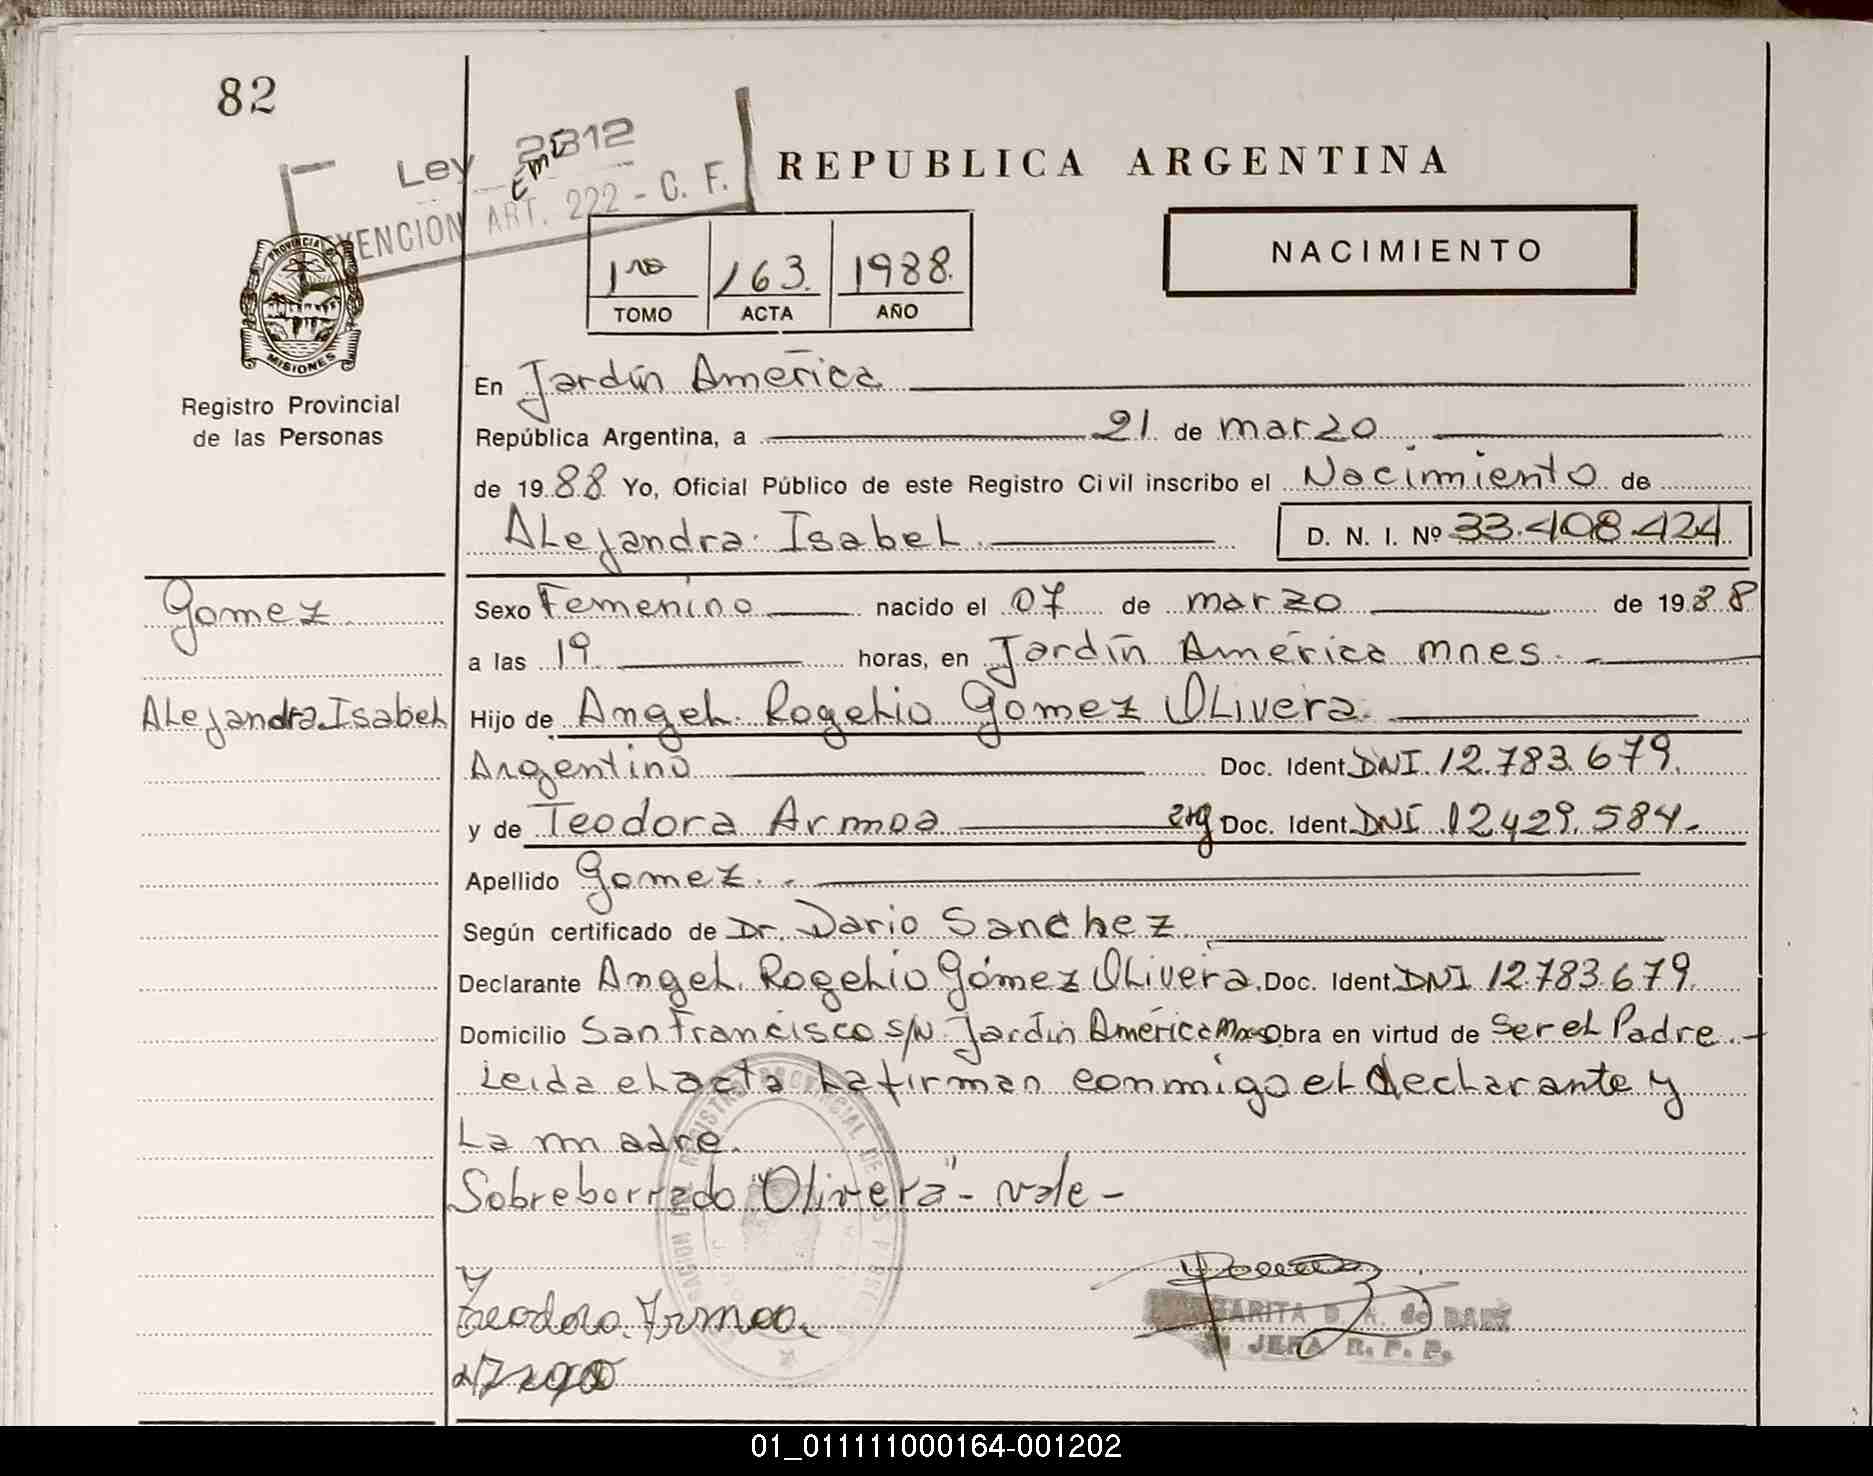 82
Ley 2812
EXENCION ART. 222 - C. F.
REPUBLICA ARGENTINA
NACIMIENTO
1ro 163. 1988.
TOMO ACTA AÑO
PROVINCIA DE
MISIONES
Registro Provincial
de las Personas
En Jardín América
República Argentina, a 21 de marzo
de 1988 Yo, Oficial Público de este Registro Civil inscribo el Nacimiento de
Alejandra Isabel D. N. I. Nº 33.408.424
Gomez
Alejandra Isabel
Sexo Femenino nacido el 07 de marzo de 1988
a las 19 horas, en Jardín América mnes.
Hijo de Angel Rogelio Gomez Olivera
Argentino Doc. Ident. DNI 12.783.679.
y de Teodora Armoa arg Doc. Ident. DNI 12429.584.
Apellido Gomez.
Según certificado de Dr. Dario Sanchez
Declarante Angel Rogelio Gómez Olivera. Doc. Ident. DNI 12.783.679.
Domicilio San Francisco S/N Jardín América Mnes Obra en virtud de Ser el Padre.-
Leida el acta la firman conmigo el declarante y
La madre.
Sobreborrado "Olivera" - vale -
Teodora Armoa
MARGARITA D. A. de BAEZ
JEFA R. P. P.
01_011111000164-001202